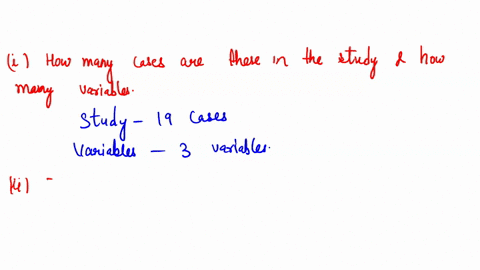 (i) How many cases are there in the study & how
many variables.
Study - 19 cases
Variables - 3 variables.
(ii)